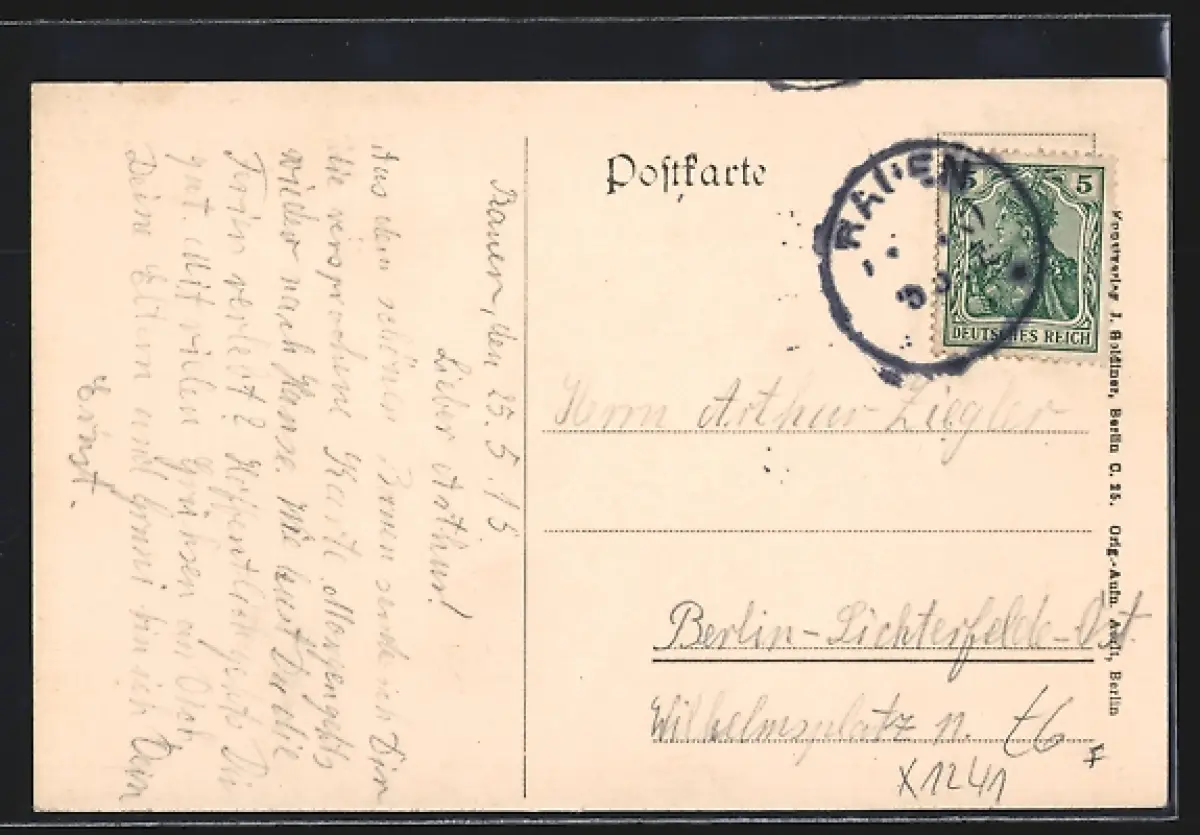 Postkarte
RAUEN
5 5
DEUTSCHES REICH
Rauen, den 25.5.15
Lieber Arthur!
Aus dem schönen Rauen sende ich Dir
die versprochene Karte. Morgen gehts
wieder nach Hause. Wie hast Du die
Ferien verlebt? Hoffentlich gehts Dir
gut. Mit vielen Grüssen an Dich,
Deine Eltern und bin ich Dein
Ernst.
Herrn Arthur Ziegler
Berlin-Lichterfelde-Ost
Wilhelmsplatz n.
X1241
Kunstverlag J. Goldiner, Berlin C. 25. Orig.-Aufn. Berlin